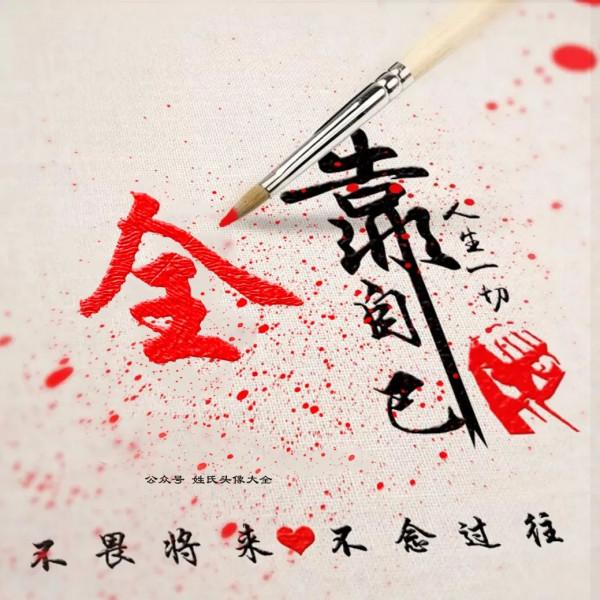 全
靠自己
人生一切
公众号 姓氏头像大全
不畏将来 不念过往